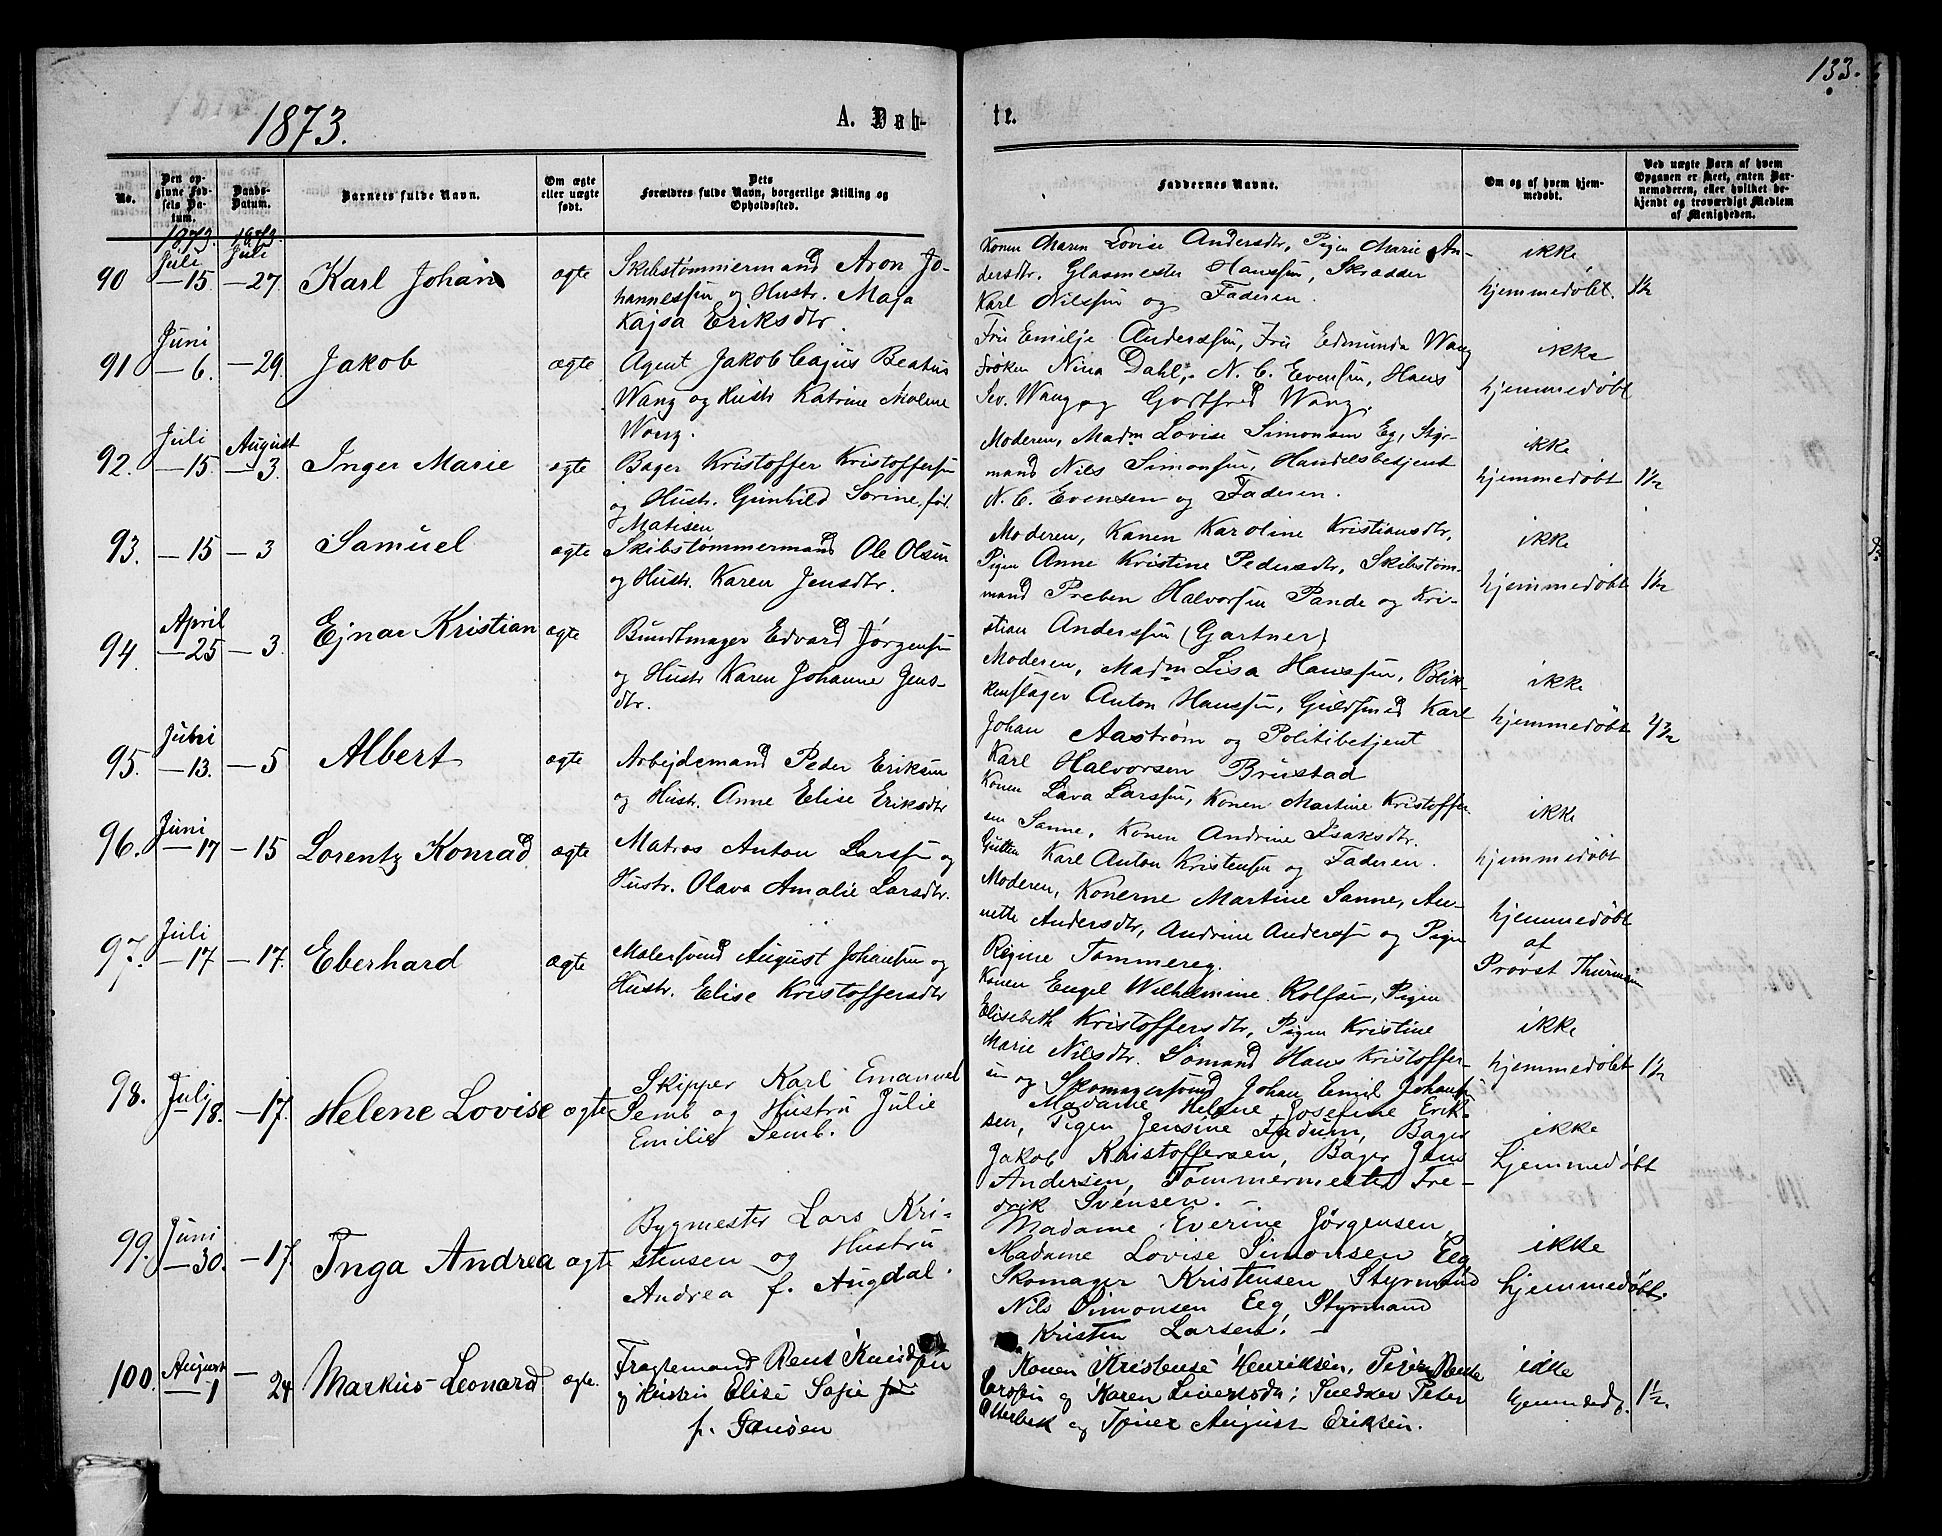 133.
1873.
A. Døb-
te.
No.
Den op-
givne Fød-
sels Da-
tum.
Daabs-
Datum.
Barnets fulde Navn.
Om ægte
eller uægte
født.
Dets
Forældres fulde Navn, borgerlige Stilling og
Opholdssted.
Faddernes Navne.
Om og af hvem hjem-
medøbt.
Ved uægte Barn af hvem
Opgaven er skeet, enten Bar-
nemoderen, eller hvilket be-
kjendt og troværdigt Medlem
af Menigheden.
1873. 1873.
Juli Juli
90 — 15. — 27. Karl Johan ægte
Skibstømmermand Aron Jo-
hannessen og Hustr. Maja
Kajsa Eriksdtr.
Konen Maren Lovise Andersdtr, Pigen Marie An-
dersdtr. Glasmester Hanssen, Skrædder
Karl Nilssen og Faderen.
ikke
hjemmedøbt. 1½
Juni
91 — 6. — 29. Jakob ægte
Agent Jakob Cajus Beatus
Wang og Hustr Katrine Molene
Wang.
Fru Emilje Anderssen, Fru Edmunda Wang
Frøken Nina Dahl, N. C. Evensen, Hans
Sev. Wang og Gottfred Wang.
ikke
hjemmedøbt
Juli August
92. — 15. — 3. Inger Marie ægte
Bager Kristoffer Kristoffersen
og Hustr. Gunhild Sorine, fød.
Matisen
Moderen, Madm Lovise Simonsen Eg, Styr-
mand Nils Simonsen, Handelsbetjent
N. C. Evensen og Faderen.
ikke
hjemmedøbt 1½
93. — 15 — 3 Samuel ægte
Skibstømmermand Ole Olsen
og Hustr. Karen Jensdtr.
Moderen, Konen Karoline Kristiansdtr,
Pigen Anne Kristine Pedersdtr, Skibstøm-
mand Preben Halvorsen Pande og Kri-
stian Anderssen (Gartner)
ikke
hjemmedøbt 1½
April
94. — 25 — 3. Ejnar Kristian ægte
Bundtmager Edvard Jørgensen
og Hustr Karen Johanne Jens-
dtr.
Moderen, Madm Lisa Hanssen, Blik-
kenslager Anton Hanssen, Guldsmed Karl
Johan Aastrøm og Politibetjent
Karl Halvorsen Brustad
ikke
hjemmedøbt
95. — 13. — 5 Albert ægte
Arbejdsmand Peder Eriksen
og Hustr. Anne Elise Eriksdtr
Konen Lava Larssen, Konen Martine Kristoffer-
sen Sanne, Konen Andrine Isaksdtr.
Gutten Karl Anton Kristensen og Faderen.
ikke
hjemmedøbt
Juni
96. — 17 — 15 Lorentz Konrad ægte
Matros Anton Larssen og
Hustr. Olava Amalie Larsdtr.
Moderen, Konerne Martine Sanne, An-
nette Andersdtr, Andrine Anderssen og Pigen
Regine Tommereg.
hjemmedøbt
af
Provst Thurmann
Juli
97. — 17 — 17. Eberhard ægte
Malersvend August Johansen og
Hustr. Elise Kristoffersdtr
Konen Engel Wilhelmine Rolfsen, Pigen
Elisebeth Kristoffersdtr, Pigen Kristine
Marie Nilsdtr. Sømand Hans Kristoffer-
sen og Skomagersvend Johan Emil Johansen
ikke
hjemmedøbt 1½
98. Juli
— 18. — 17. Helene Lovise ægte
Skipper Karl Emanuel
Semb og Hustru Julie
Emilie Semb.
Madame Helene Josefine Erik-
sen, Pigen Jensine Fadum, Bager
Jakob Kristoffersen, Bager Jens
Andersen, Tømmermester Fre-
drik Svensen. —
ikke
hjemmedøbt
Juni
99. — 30. — 17. Inga Andrea ægte
Bygmester Lars Kri-
stensen og Hustru
Andrea f. Augdal.
Madame Everine Jørgensen
Madame Lovise Simonsen Eeg
Skomager Kristensen, Styrmand
Nils Simonsen Eeg, Styrmand
Kristen Larsen. —
ikke
hjemmedøbt.
August
100. — 1 — 24 Markus Leonard ægte.
Fragtemand Rens Knudsen
og Hustru Elise Sofie
f. Jansen
Konen Kristense Henriksen, Pigen
og Karen Sivertsdtr; Snedker Peter
Otterbek og August Eriksen.
ikke
hjemmedø. 1½